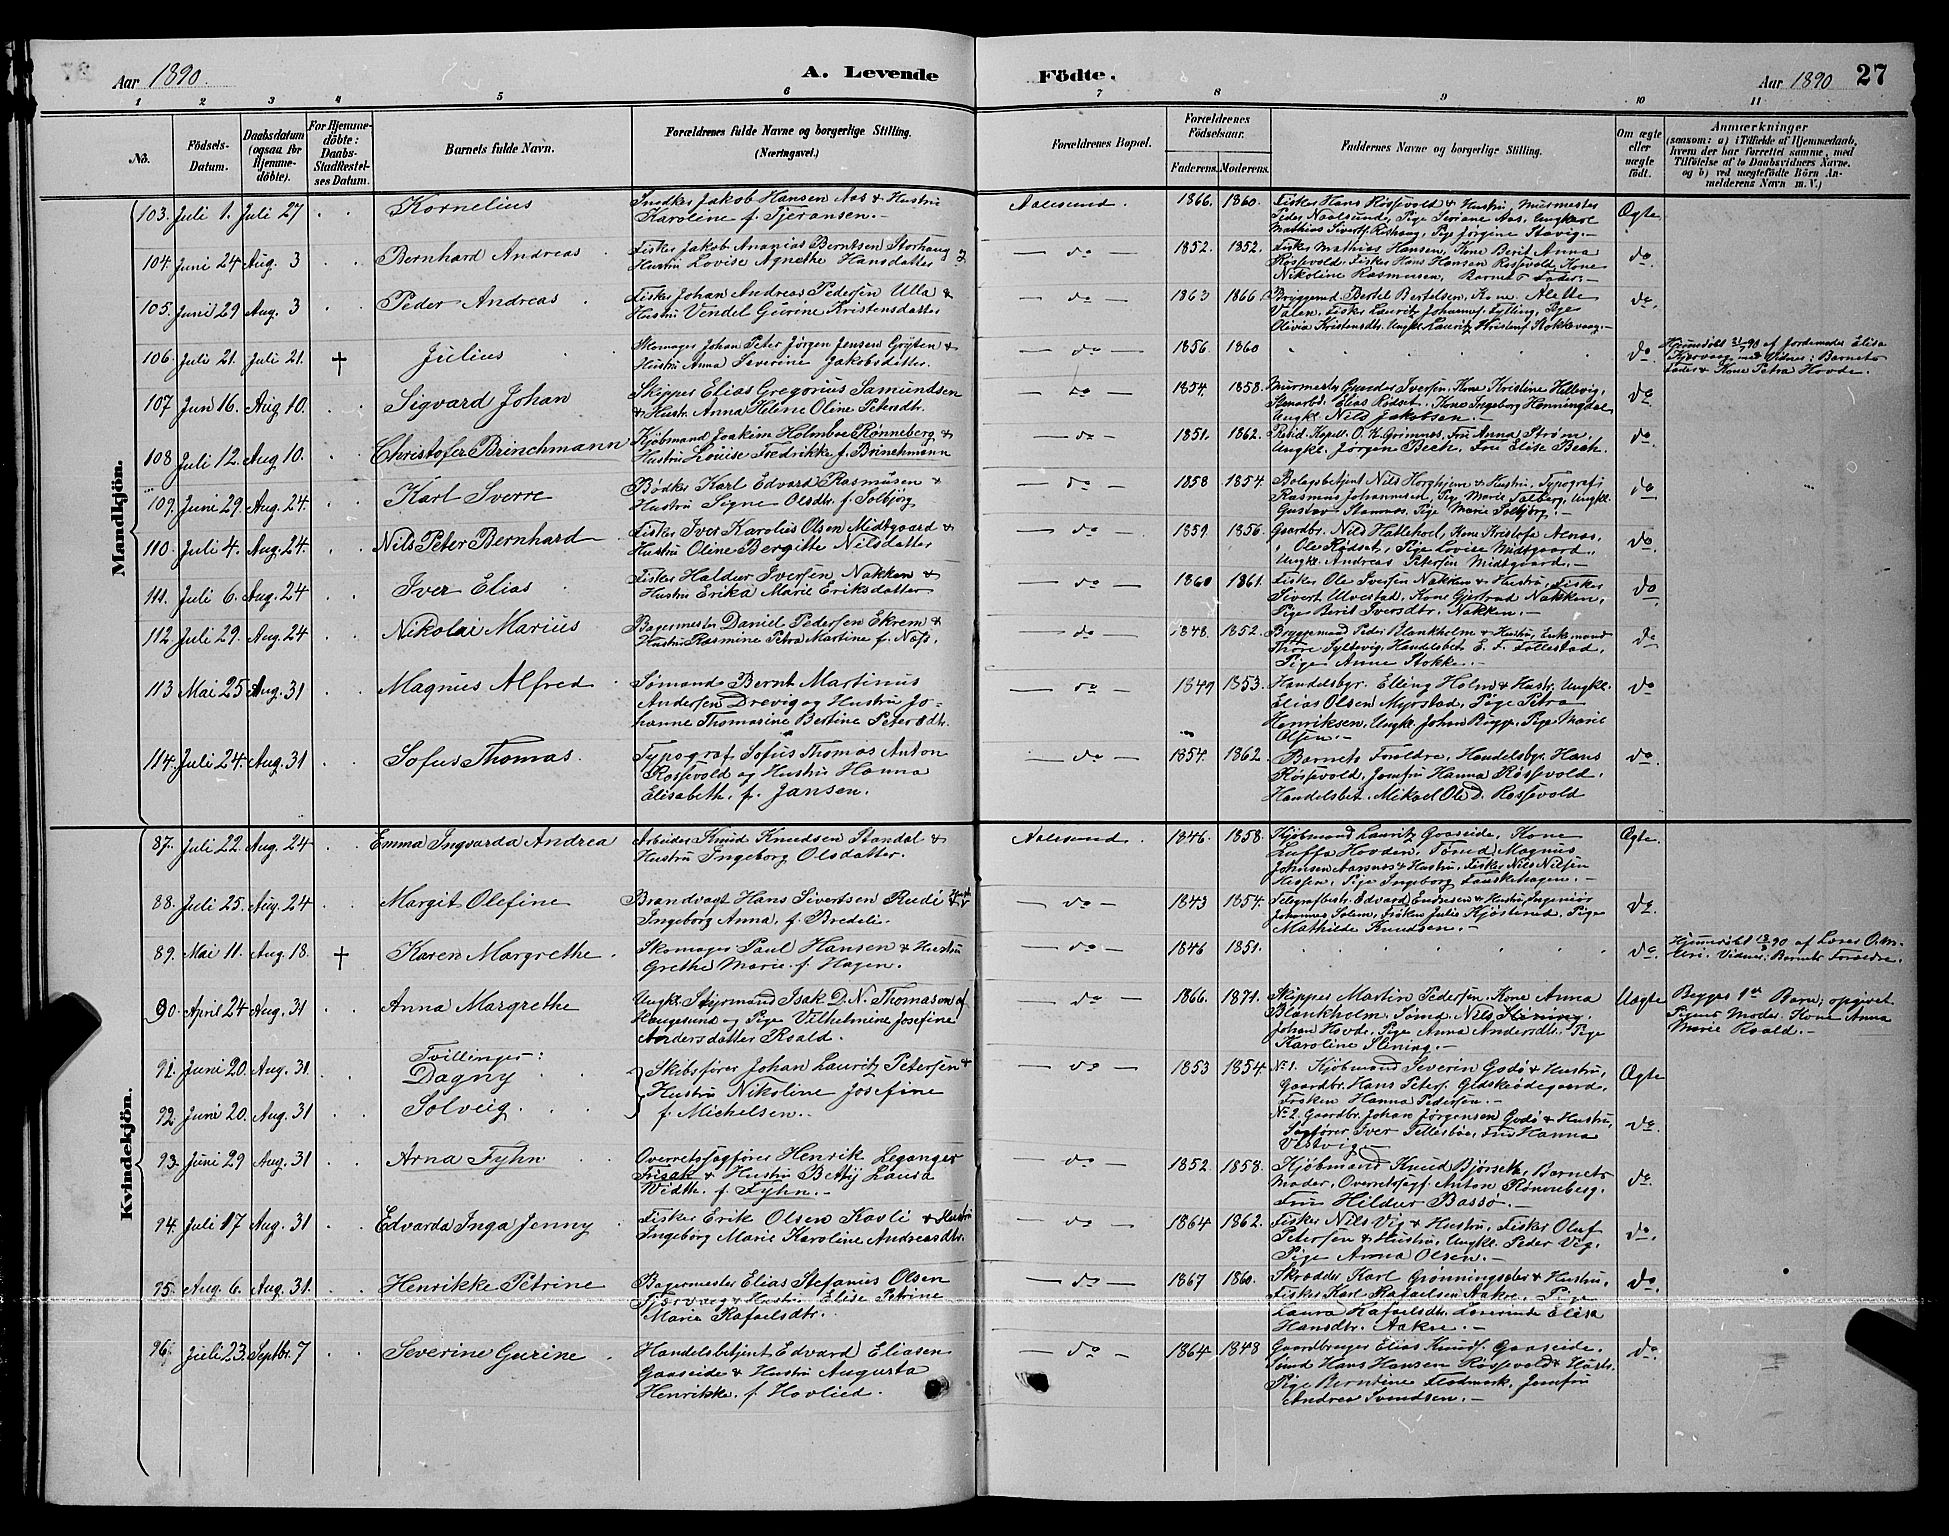 Aar 1890.
A. Levende
Födte.
Aar 1890
27
1 2 3 4 5 6 7 8 9 10 11
No.
Födsels-Datum.
Daabsdatum (ogsaa for Hjemmedöbte).
For Hjemmedöbte: Daabs-Stadfæstelses Datum.
Barnets fulde Navn.
Forældrenes fulde Navne og borgerlige Stilling. (Næringsvei.)
Forældrenes Bopæl.
Forældrenes Födselsaar.
Faderens. Moderens.
Faddernes Navne og borgerlige Stilling.
Om ægte eller uægte födt.
Anmærkninger
(saasom: a) i Tilfælde af Hjemmedaab, hvem der har forrettet samme, med Tilföielse af to Daabsvidners Navne, og b) ved uægtefödte Börn Anmelderens Navn m. V.)
Mandkjön.
103. Juli 1. Juli 27 Kornelius
Jakob Hansen Aas & Hustru
Karoline f. Tjeransen.
Aalesund. 1866. 1860.
Fisker Hans Røssevold & Hustru, Murmester
Peder Naalsund, Pige Iveriane Aas, Ungkarl
Pige Jørgine Slavig.
Ægte
104. Juni 24 Aug. 3 Bernhard Andreas
Fisker Jakob Ananias Berntsen Storhaug &
Hustru Lovise Agnethe Hansdatter
do 1852. 1852.
Fisker Mathias Hansen, Kone Berit Anna
Røssevold, Fisker Hans Hansen Røssevold, Kone
Nikoline Rasmusen, Barnets Fader.
do.
105. Juni 29 Aug. 3 Peder Andreas
Fisker Johan Andreas Pedersen Ulla &
Hustru Vendel Gurine Kristensdatter
do 1863 1866.
Bryggemd. Bertel Bertelsen, Kone Alette
Valen, Fisker Lauritz Johannes. Fylling, Pige
Olivia Kristensdtr. Ungkl. Lauritz Kristens. Stokkevaag.
do.
106. Juli 21. Juli 21. † Julius
Skomager Johan Peter Jørgen Jensen Grytten &
Hustru Anna Severine Jakobsdatter.
do 1856. 1860
do.
Hjemmedöbt 21/7 90 af Jordemoder Elisa
med Vidner: Barnets
Fader & Kone Petra Hovde.
107 Jun 16. Aug 10. Sigvard Johan
Skipper Elias Gregorius Samundsen
& Hustr. Anna Helene Oline Petersdtr.
do 1854. 1858.
Murmester Gunder Iversen, Kone Kristine Hellevig,
Stenarbd. Elias Rødset, Kone Ingeborg Henningdal
Ungkl. Nils Jakobsen.
do
108 Juli 12. Aug 10. Christofer Brinchmann
Kjøbmand Joakim Holmboe Rønneberg &
Hustru Louise Fredrikke f. Brinchmann
do 1851. 1862.
Resid. Kapell. O. K. Grimnes, Fru Anna Strøm,
Ungkl. Jørgen Beck, Fru Elise Beck.
do
109. Juni 29. Aug. 24. Karl Sverre
Bødker Karl Edvard Rasmusen &
Hustru Signe Olsdtr. f. Solbjørg
do. 1858 1854.
Bolagsbetjent Nils Horghjem & Hustru, Typograf
Rasmus Johannesen, Pige Marie Solberg, Ungkl.
Gustav Stamnes, Pige Marie Solbjørg.
do
110. Juli 4. Aug. 24. Nils Peter Bernhard
Fisker Iver Karolius Olsen Midtgaard &
Hustru Oline Bergitte Nilsdatter
do 1859. 1856.
Gaardbr. Nils Hatlehol, Kone Kristofa Aenas,
Ole Rødset, Pige Lovise Midtgaard,
Ungkl. Andreas Petersen Midtgaard.
do
111. Juli 6. Aug. 24 Iver Elias
Fisker Haldur Iversen Nakken &
Hustru Erika Marie Eriksdatter
do 1860 1861.
Fisker Ole Iversen Nakken & Hustru, Fisker
Sivert Ulvestad, Kone Gjertrud Nakken,
Pige Berit Iversdtr. Nakken.
do
112. Juli 29. Aug. 24 Nikolai Marius
Bagermester Daniel Pedersen Ekrem &
Hustru Rasmine Petra Martine f. Næss.
do 1848. 1852.
Bryggemand Peder Blankholm & Hustru, Enkemand
Thore Sylteвig, Handelsbet. E. F. Follestad,
Pige Anne Stokke.
do
113 Mai 25 Aug. 31 Magnus Alfred
Sømand Bernt Martinus
Andersen Drevig og Hustru Jo-
hanne Thomasine Bertine Petersdtr.
do 1849 1853.
Handelsbgr. Elling Holm & Hustr. Ungkl.
Elias Olsen Myrstad, Pige Petra
Henriksen, Ungkl. Johan Bugge, Pige Marie
Olsen.
do
114. Juli 24. Aug. 31 Sofus Thomas.
Typograf Sofus Thomas Anton
Røssevold og Hustru Hanna
Elisabeth. f. Jansen.
do 1854. 1862.
Barnets Forældre, Handelsbgr. Hans
Røssevold, Jomfru Hanna Røssevold,
Handelsbet. Mikael Ole D. Røssevold
do.
Kvindekjön.
87. Juli 22. Aug. 24 Emma Ingvarda Andrea
Arbeider Knud Knudsen Standal &
Hustru Ingeborg Olsdatter.
Aalesund 1846. 1858.
Kjøbmand Lauritz Gaaseide, Kone
Luffa Hovden, Tømd. Magnus
Johnsen Aarsnes & Hustru, Fisker Nils Nilsen
Hessen, Pige Ingeborg
Ægte.
88. Juli 25. Aug. 24 Margit Olefine
Brandvagt Hans Sivertsen Rudi & Hustr
Ingeborg Anna. f. Bredeli.
do 1843 1854.
Telegrafbestr. Edvard Endresen & Hustru, Ingeniör
Johannes Solem, Frøken Julie Kjøsterud, Pige
Mathilde Knudsen.
do
89. Mai 11. Aug. 18. † Karen Margrethe.
Skomager Paul Hansen & Hustru
Grethe Marie f. Hagen.
do 1846 1851.
do.
Hjemmedöbt 18/8 90 af Lærer
Vidner: Barnets Forældre.
90. April 24 Aug. 31 Anna Margrethe
Ungk. Styrmand Isak D. N. Thomason af
Haugesund og Pige Vilhelmine Josefine
Andersdatter Roald.
do 1866. 1871.
Skipper Martin Pedersen, Kone Anna
Blankholm, Sømd. Nils Slening,
Johan Hovde, Pige Anna Andersdtr. Pige
Karoline Slening.
Uægte
Begges 1ste Barn, opgivet
Pigens Moder. Kone Anna
Marie Roald.
Tvillinger:
91. Juni 20. Aug. 31 Dagny
92. Juni 20. Aug. 31 Solveig.
Skibsfører Johan Lauritz Petersen &
Hustru Nikoline Josefine
f. Michelsen.
do 1853 1854.
No 1. Kjøbmand Severin Godø & Hustru,
Gaardbr. Hans Peters. Gidskeødegaard,
Frøken Hanna Pedersen.
No 2. Gaardbr. Johan Jørgensen Godø & Hustru,
Sagfører Iver Tellesbøe, Fru Hanna
Vestvig.
Ægte
do.
93. Juni 29 Aug. 31 Arna Fyhn.
Overretssagfører Henrik Leganger
Frisak & Hustru Betty Laura
Wedth. f. Fyhn.
do 1852 1858.
Kjøbmand Knud Bjørseth, Barnets
Moder, Overretssagf. Anton Rønneberg.
Fru Hildur Bassø.
do.
94. Juli 17 Aug. 31 Edvarda Inga Jenny
Fisker Erik Olsen Kavli & Hustru
Ingeborg Marie Karoline Andreasdtr.
do 1864 1862.
Fisker Nils Vig & Hustru, Fisker Oluf
Petersen & Hustru, Ungkl. Peder Vig,
Pige Anna Olsen.
do.
95. Aug. 6. Aug. 31. Henrikke Petrine
Bagermester Elias Stefanus Olsen
Tjærvaag & Hustru Elise Petrine
Marie Rafaelsdtr.
do 1867 1860.
Skrædder Karl Grønningsæter & Hustru,
Fisker Karl Rafaelsen Aakre, Pige
Laura Rafaelsdtr. Lærerinde Elisa
Hansdtr. Aakre.
do.
96. Juli 23. Septbr. 7 Severine Gurine
Handelsbetjent Edvard Eliasen
Gaaseide & Hustru Augusta
Henrikke. f. Hovlied.
do 1864 1848
Gaardbruger Elias Knuds. Gaaseide.
Sømd. Hans Hansen Røssevold & Hustr.
Pige Berntine Flodmark, Jomfru
Andrea Svendsen.
do.